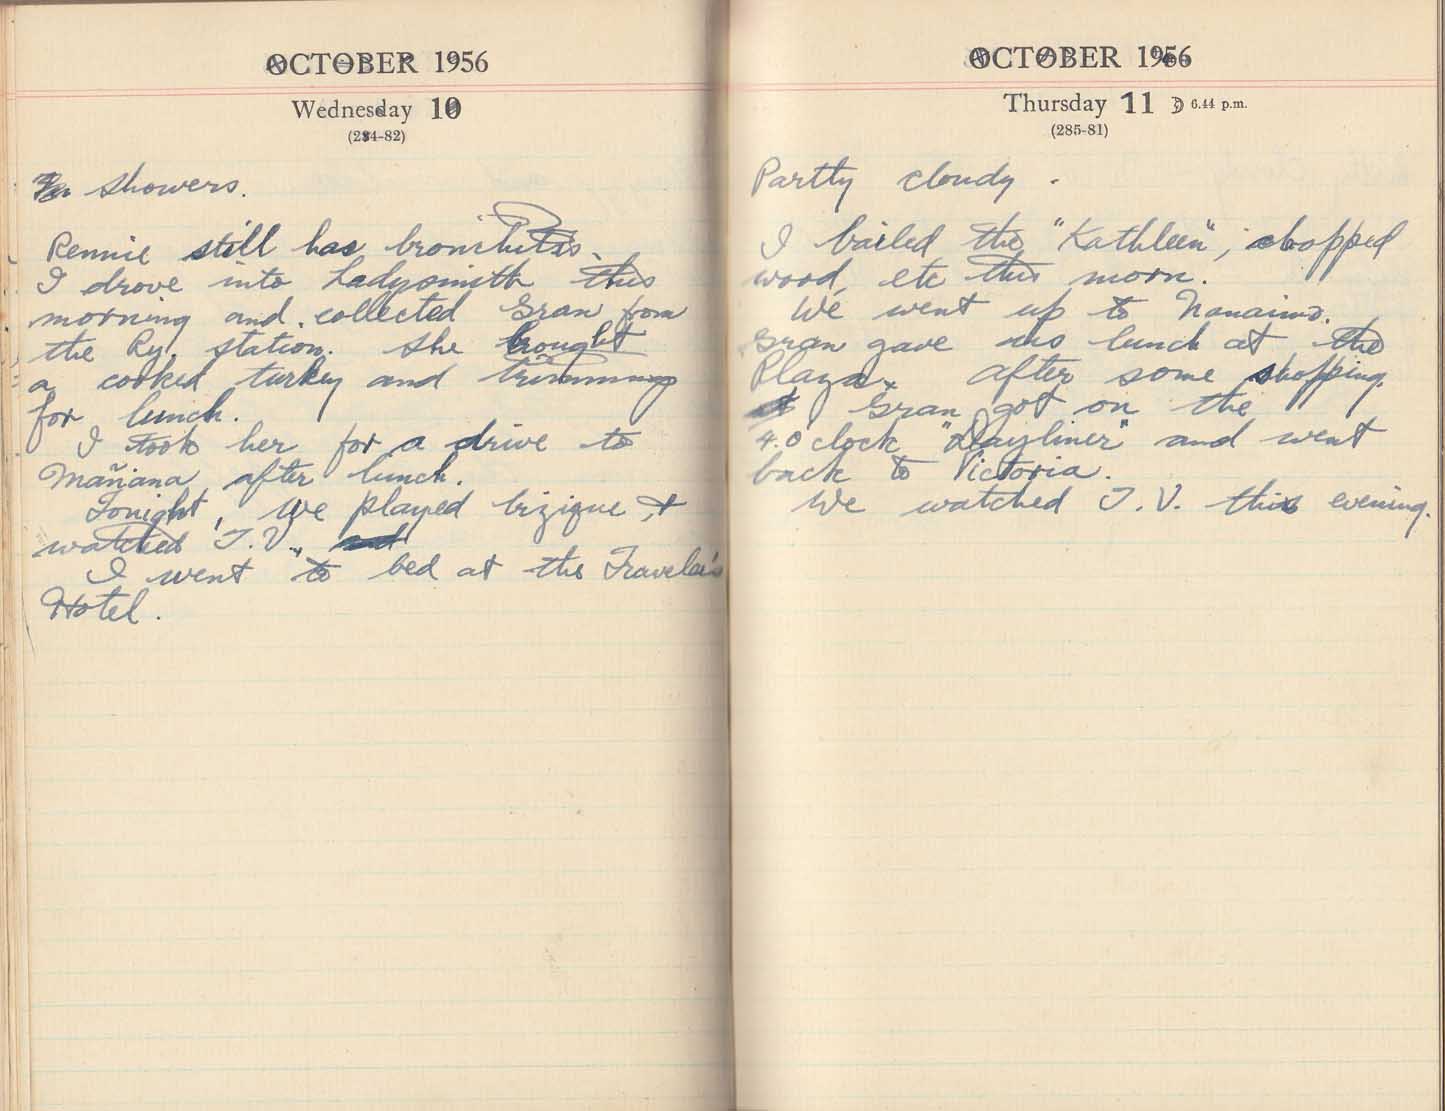 OCTOBER 1956
Wednesday 10
(284-82)
Showers.
Rennie still has bronchitis.
I drove into Ladysmith this
morning and collected Gran from
the Ry. station. She brought
a cooked turkey and trimmings
for lunch.
I took her for a drive to
Mañana after lunch.
Tonight, we played bizique +
watched T.V., and
I went to bed at the Traveler's
Hotel.
OCTOBER 1956
Thursday 11 6.44 p.m.
(285-81)
Partly cloudy.
I bailed the "Kathleen", chopped
wood, etc this morn.
We went up to Nanaimo.
Gran gave us lunch at the
Plaza. After some shopping,
Gran got on the
4.0'clock "Dayliner" and went
back to Victoria.
We watched T.V. this evening.